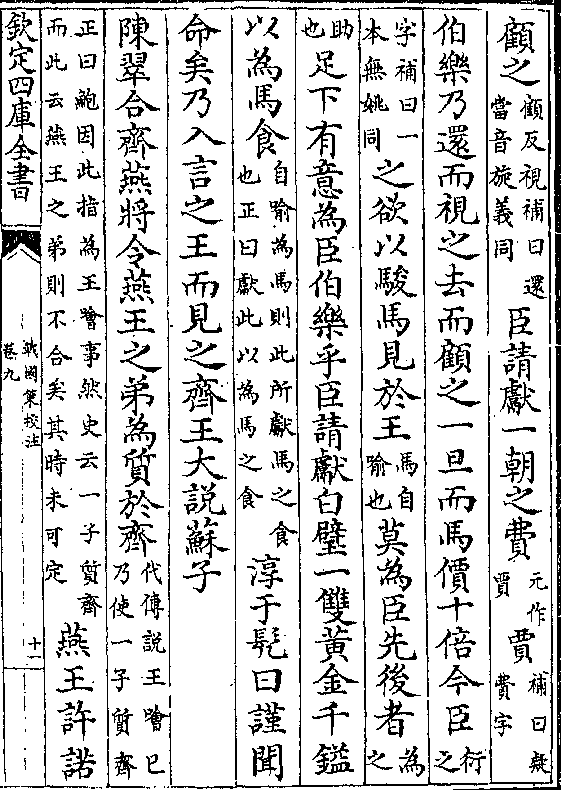 顧之顧反視補曰還當音旋義同臣請獻一朝之費元作賈賈補曰疑費字
伯樂乃還而視之去而顧之一旦而馬價十倍今臣衍之
字補曰一本無姚同之欲以駿馬見於王馬自喻也莫為臣先後者為之
助也足下有意為臣伯樂乎臣請獻白璧一雙黄金千鎰
以為馬食自喻為馬則此所獻馬之食也正曰獻此以為馬之食淳于髡曰謹聞
命矣乃入言之王而見之齊王大說蘇子
陳翠合齊燕將令燕王之弟為質於齊代傳說王噲已乃使一子質齊
正曰鮑因此指為王噲事然史云一子質齊而此云燕王之弟則不合矣其時未可定燕王許諾
欽定四庫全書
戰國策校注
卷九
十一